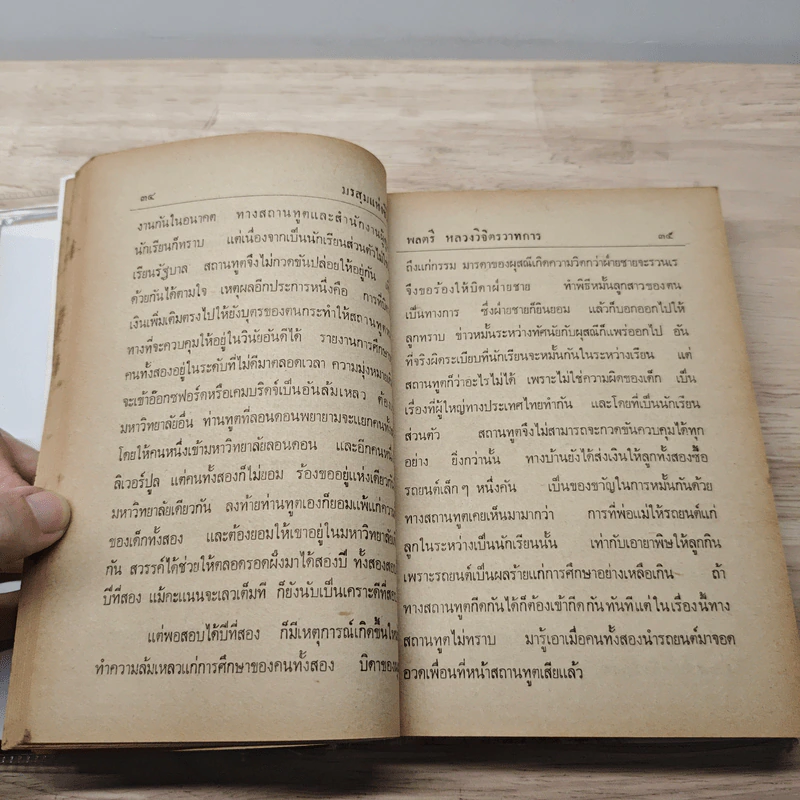 ๓๔ มรสุมแห่ง
งานกันในอนาคต ทางสถานทูตและสำนักงานผู้
นักเรียนก็ทราบ แต่เนื่องจากเป็นนักเรียนส่วนตัวไม่ใช่
เรียนรัฐบาล สถานทูตจึงไม่กวดขันปล่อยให้อยู่กัน
ด้วยกันได้ตามใจ เหตุผลอีกประการหนึ่งคือ การที่บิดา
เงินเพิ่มเติมตรงไปให้ยังบุตรของตนกระทำให้สถานทูต
ทางที่จะควบคุมให้อยู่ในวินัยอันดีได้ รายงานการศึกษา
คนทั้งสองอยู่ในระดับที่ไม่ดีมาตลอดเวลา ความมุ่งหมาย
จะเข้าอ๊อกซฟอร์ดหรือเคมบริดจ์เป็นอันล้มเหลว ต้อง
มหาวิทยาลัยอื่น ท่านทูตที่ลอนดอนพยายามจะแยกคนทั้ง
โดยให้คนหนึ่งเข้ามหาวิทยาลัยลอนดอน และอีกคนหนึ่ง
ลิเวอร์ปูล แต่คนทั้งสองก็ไม่ยอม ร้องขออยู่แห่งเดียวกัน
มหาวิทยาลัยเดียวกัน ลงท้ายท่านทูตเองก็ยอมแพ้แก่ความ
ของเด็กทั้งสอง และต้องยอมให้เขาอยู่ในมหาวิทยาลัย
กัน สวรรค์ได้ช่วยให้ตลอดรอดฝั่งมาได้สองปี ทั้งสอง
ปีที่สอง แม้คะแนนจะเลวเต็มที ก็ยังนับเป็นเคราะห์ดีที่
แต่พอสอบได้ปีที่สอง ก็มีเหตุการณ์เกิดขึ้นใหม่
ทำความล้มเหลวแก่การศึกษาของคนทั้งสอง บิดาของ
พลตรี หลวงวิจิตรวาทการ ๓๕
ถึงแก่กรรม มารดาของผุสณีเกิดความวิตกว่าฝ่ายชายจะรวนเร
จึงขอร้องให้บิดาฝ่ายชาย ทำพิธีหมั้นลูกสาวของตน
เป็นทางการ ซึ่งฝ่ายชายก็ยินยอม แล้วก็บอกออกไปให้
ลูกทราบ ข่าวหมั้นระหว่างทัศนัยกับผุสณีก็แพร่ออกไป อัน
ที่จริงผิดระเบียบที่นักเรียนจะหมั้นกันในระหว่างเรียน แต่
สถานทูตก็ว่าอะไรไม่ได้ เพราะไม่ใช่ความผิดของเด็ก เป็น
เรื่องที่ผู้ใหญ่ทางประเทศไทยทำกัน และโดยที่เป็นนักเรียน
ส่วนตัว สถานทูตจึงไม่สามารถจะกวดขันควบคุมได้ทุก
อย่าง ยิ่งกว่านั้น ทางบ้านยังได้ส่งเงินให้ลูกทั้งสองซื้อ
รถยนต์เล็ก ๆ หนึ่งคัน เป็นของขวัญในการหมั้นกันด้วย
ทางสถานทูตเคยเห็นมามากว่า การที่พ่อแม่ให้รถยนต์แก่
ลูกในระหว่างเป็นนักเรียนนั้น เท่ากับเอายาพิษให้ลูกกิน
เพราะรถยนต์เป็นผลร้ายแก่การศึกษาอย่างเหลือเกิน ถ้า
ทางสถานทูตกีดกันได้ก็ต้องเข้ากีดกันทันทีแต่ในเรื่องนี้ทาง
สถานทูตไม่ทราบ มารู้เอาเมื่อคนทั้งสองนำรถยนต์มาจอด
อวดเพื่อนที่หน้าสถานทูตเสียแล้ว